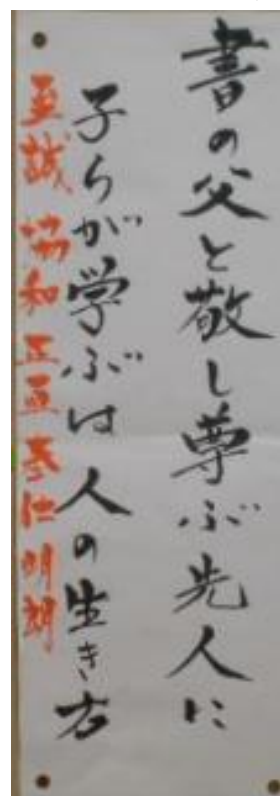 書の父と敬し尊ぶ先人に
子らが学ぶは人の生き方
至誠 協和 正直 奉仕 明朗